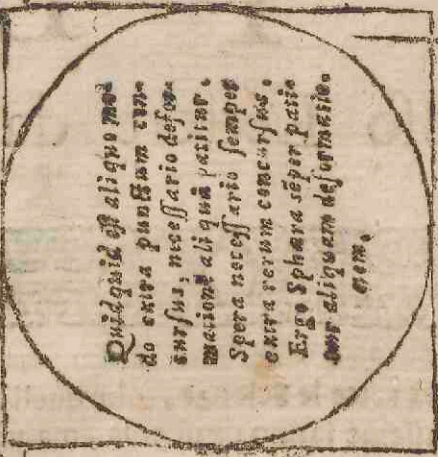 Quidquid eſt aliquo mo-
do extra punctum con-
curſus, neceſſario defor-
mationē aliquā patitur.
Spera neceſſario ſemper
extra rerum concurſus.
Ergo Sphæra sēper pati-
tur aliquam deformatio-
nem.